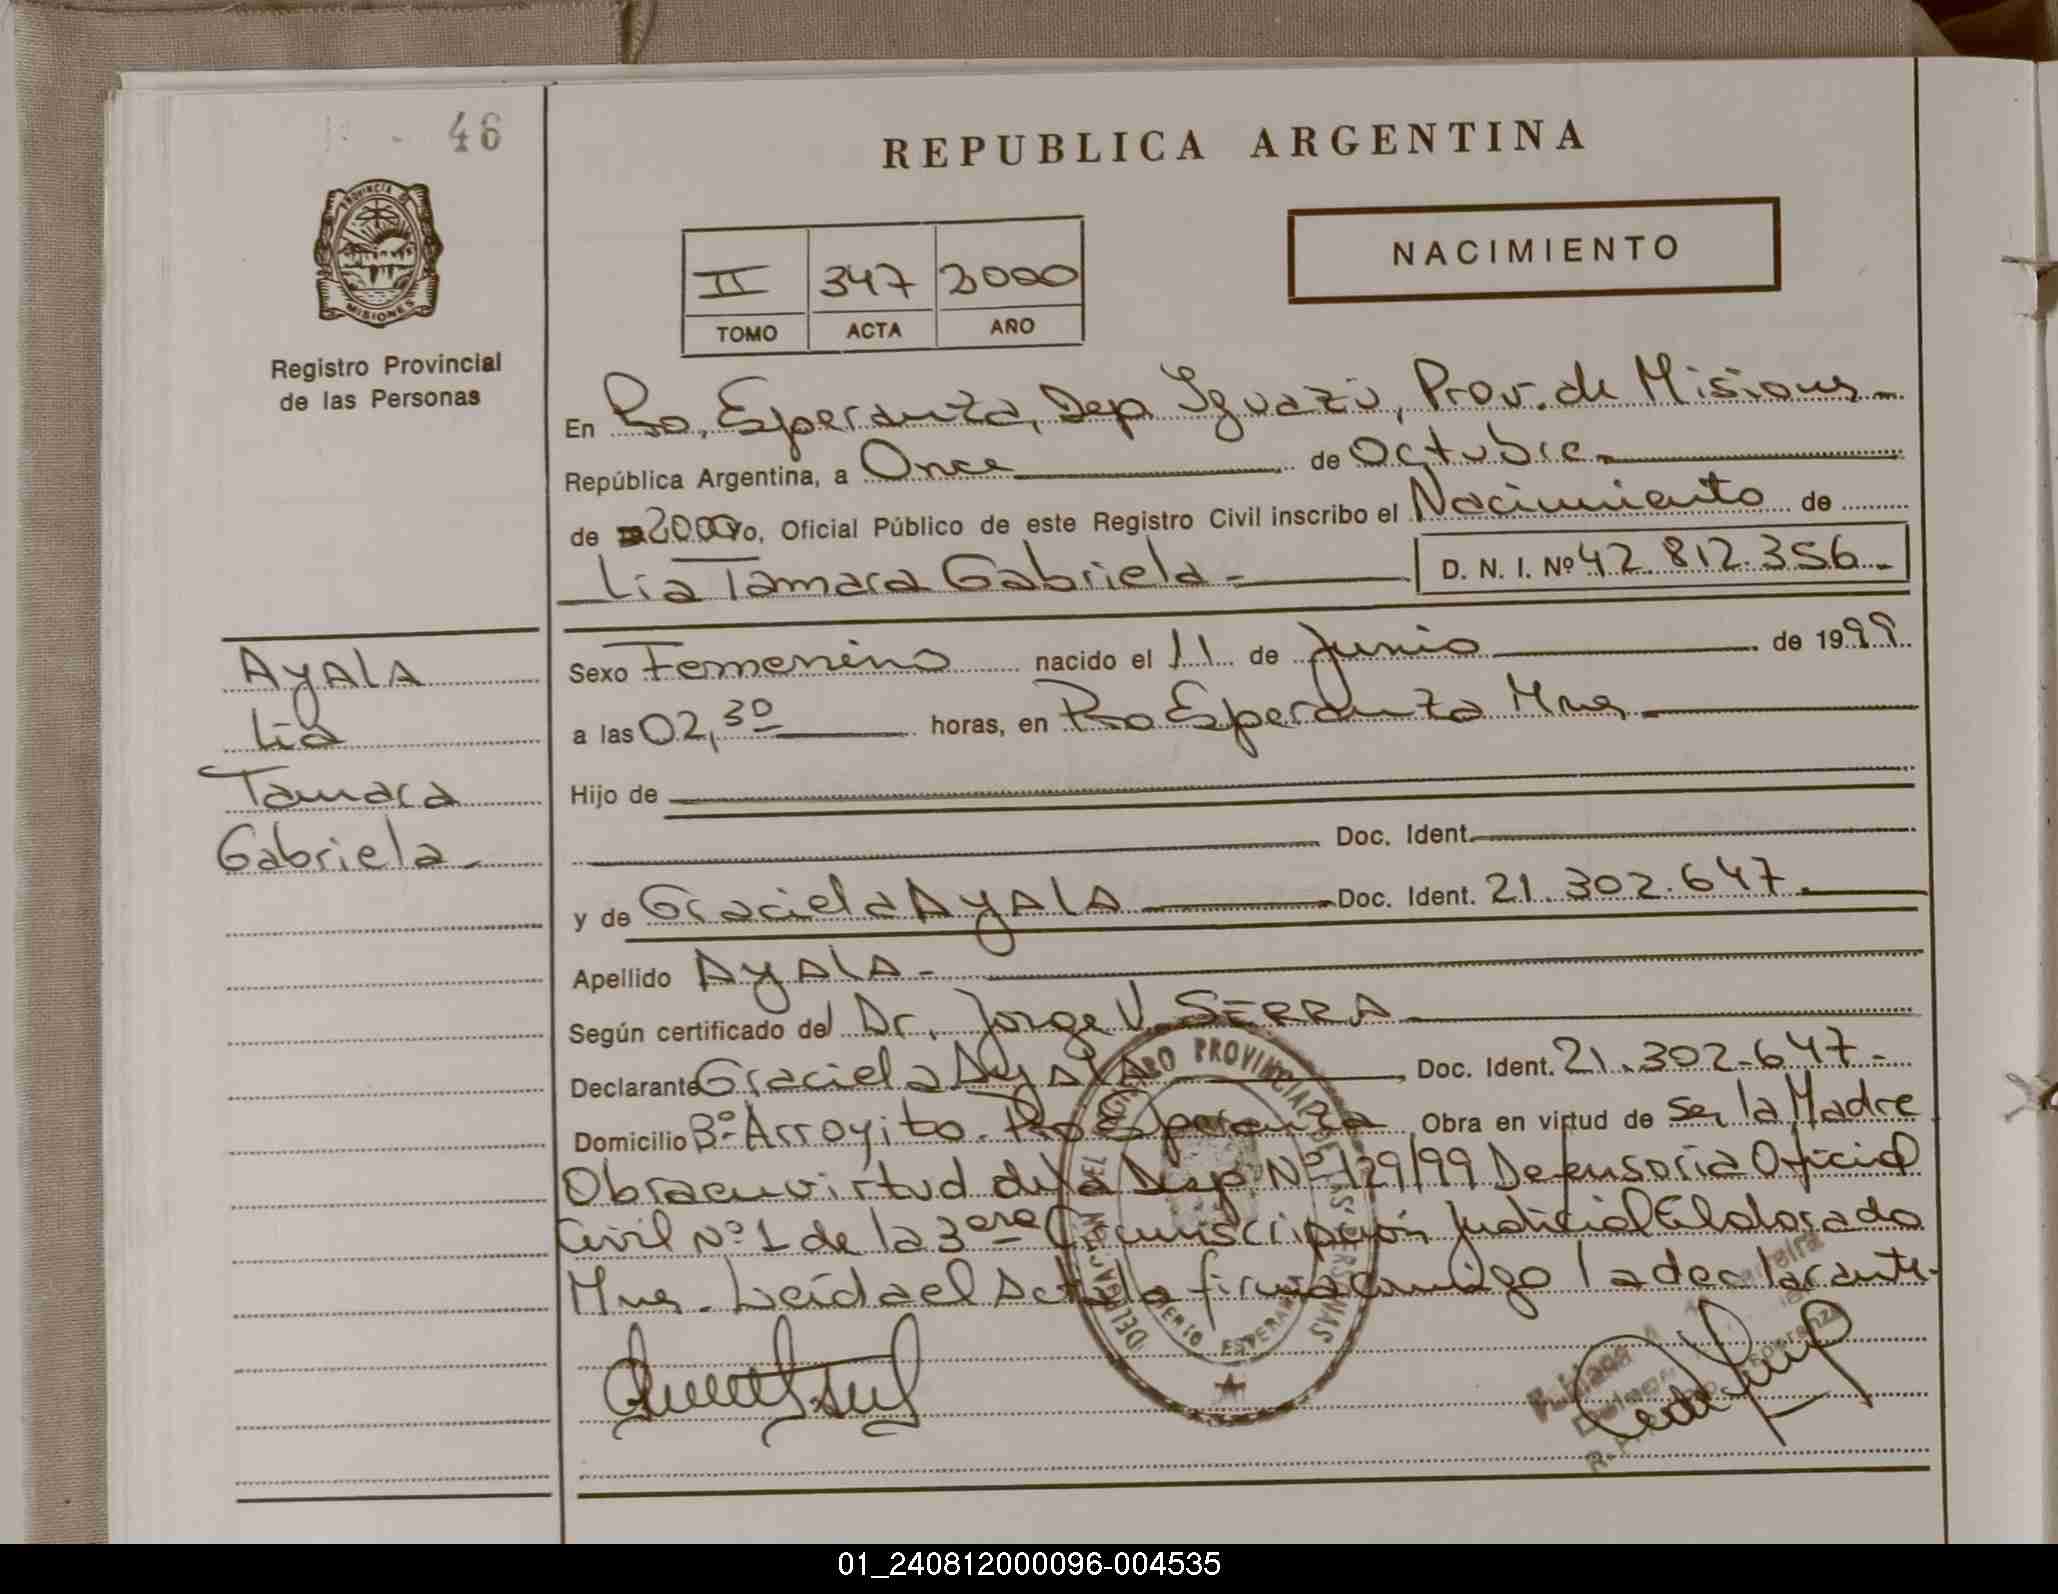 46
REPUBLICA ARGENTINA
PROVINCIA DE MISIONES
NACIMIENTO
II 347 2000
TOMO ACTA AÑO
Registro Provincial
de las Personas
En Pto. Esperanza, Dep Iguazú, Prov. de Misiones
República Argentina, a Once de Octubre
de 2000 Yo, Oficial Público de este Registro Civil inscribo el Nacimiento de
Lia Tamara Gabriela D. N. I. Nº 42.812.356
Ayala
Lia
Tamara
Gabriela
Sexo Femenino nacido el 11 de Junio de 1999
a las 02,30 horas, en Pto Esperanza Mnes
Hijo de
Doc. Ident.
y de Graciela Ayala Doc. Ident. 21.302.647
Apellido Ayala
Según certificado del Dr. Jorge V. SERRA
Declarante Graciela Ayala Doc. Ident. 21.302.647
Domicilio Bº Arroyito. Pto Esperanza Obra en virtud de Ser la Madre
Obra en virtud de la Disp. Nº 129/99 Defensoria Oficial
Civil Nº 1 de la 3era Circunscripción Judicial Eldorado
Mnes. Leída el Acta la firma conmigo la declarante
01_240812000096-004535